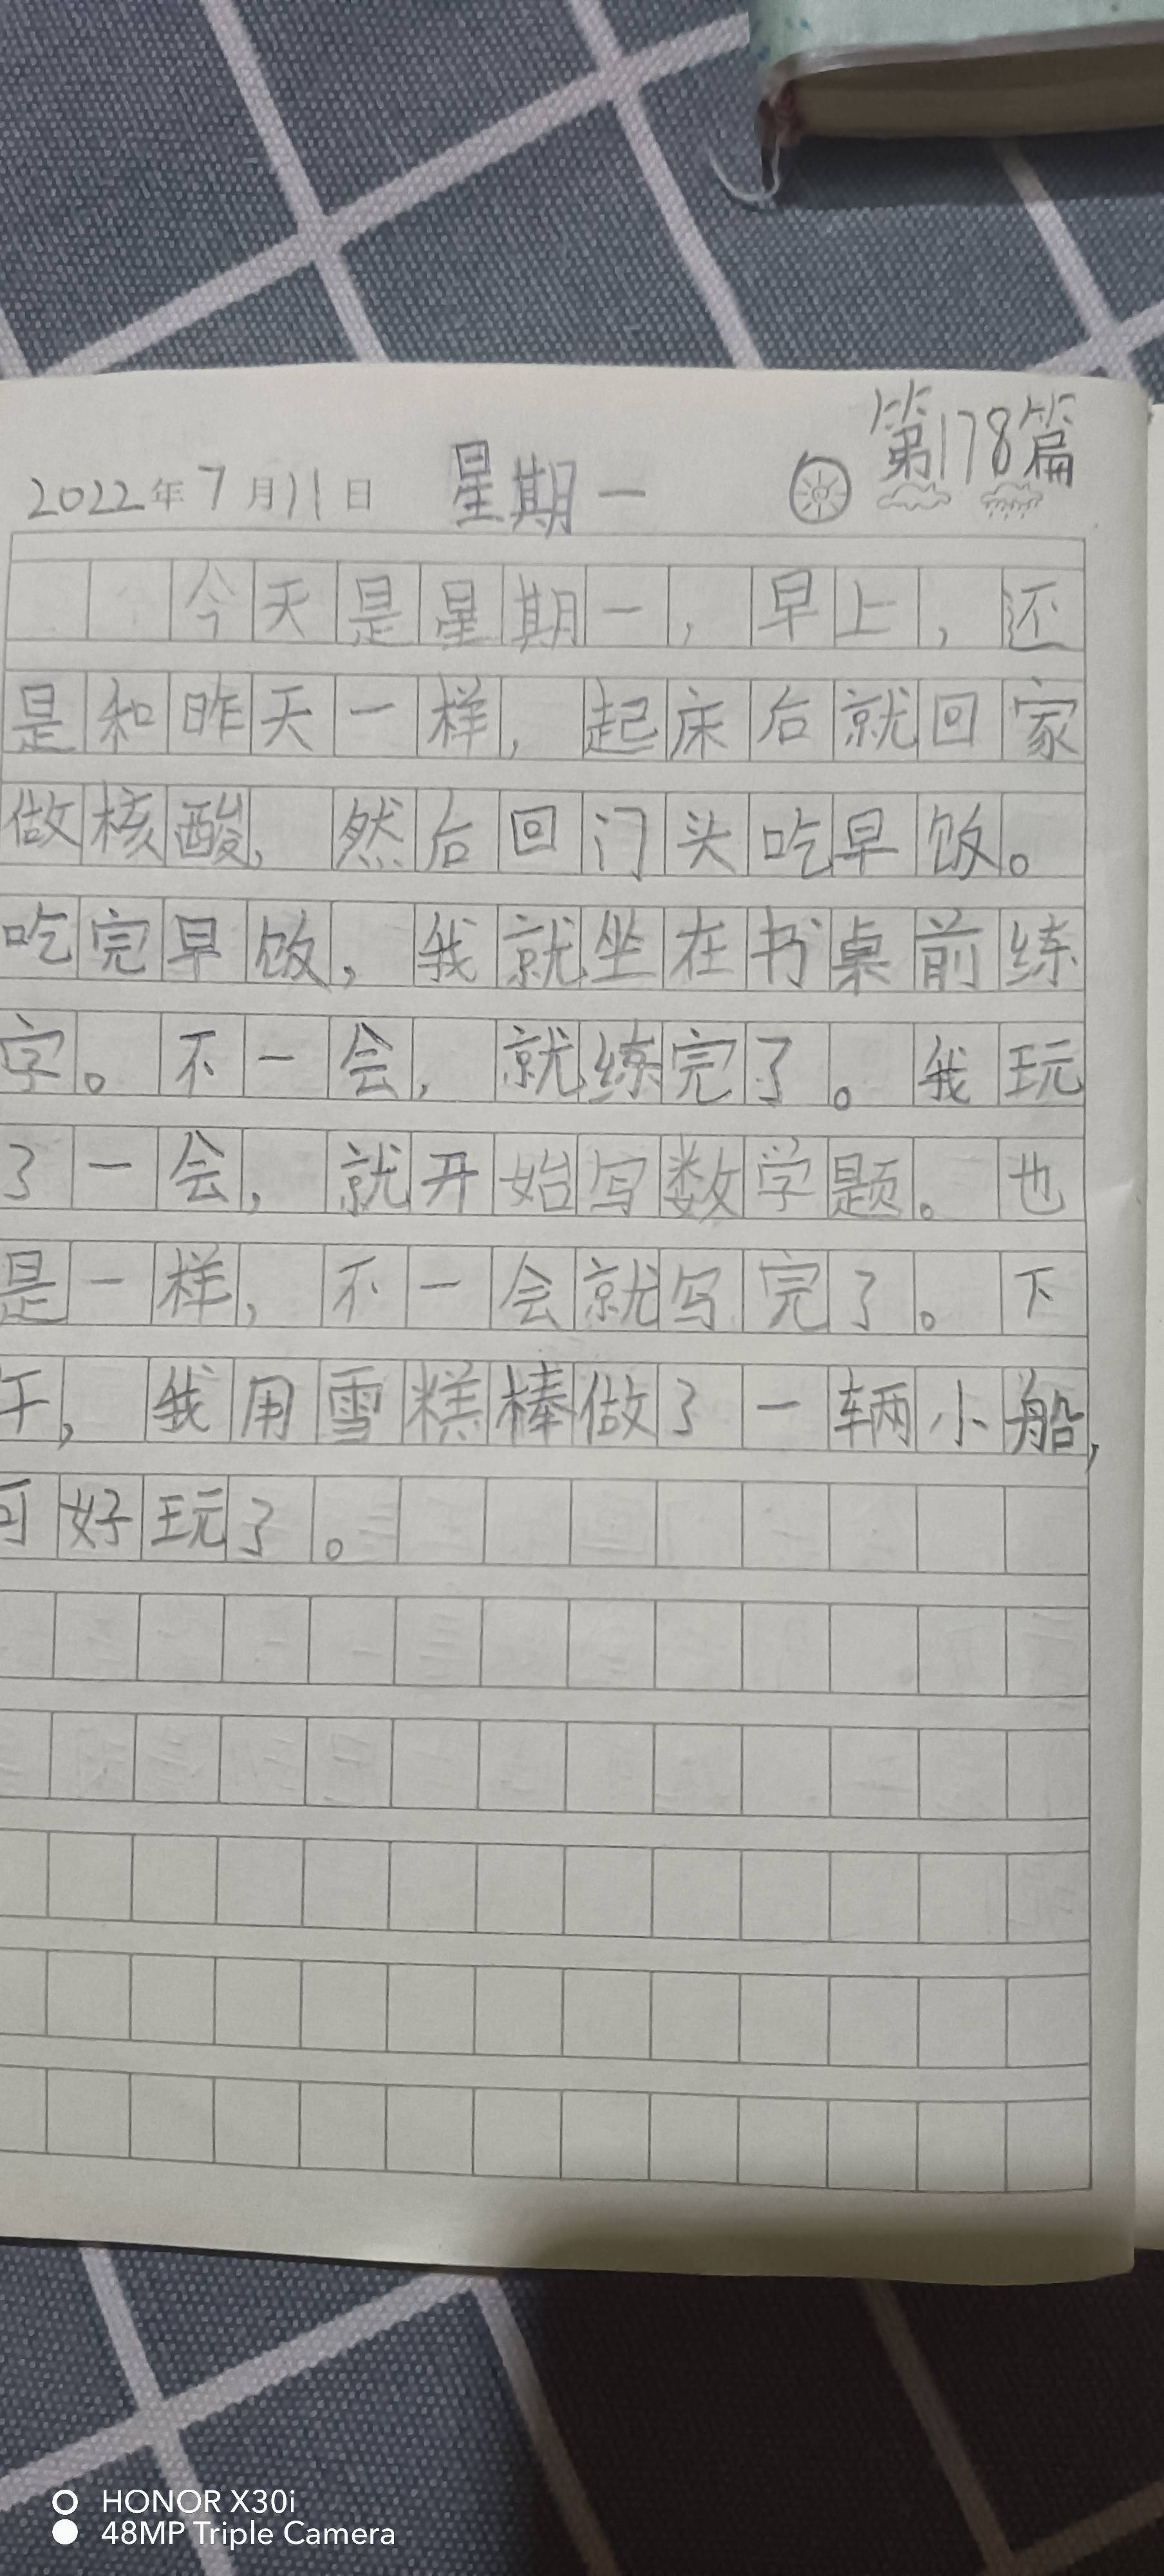 第178篇
2022年7月11日 星期一
今天是星期一，早上，还
是和昨天一样，起床后就回家
做核酸，然后回门头吃早饭。
吃完早饭，我就坐在书桌前练
字。不一会，就练完了。我玩
了一会，就开始写数学题。也
是一样，不一会就写完了。下
午，我用雪糕棒做了一辆小船，
可好玩了。
HONOR X30i
48MP Triple Camera